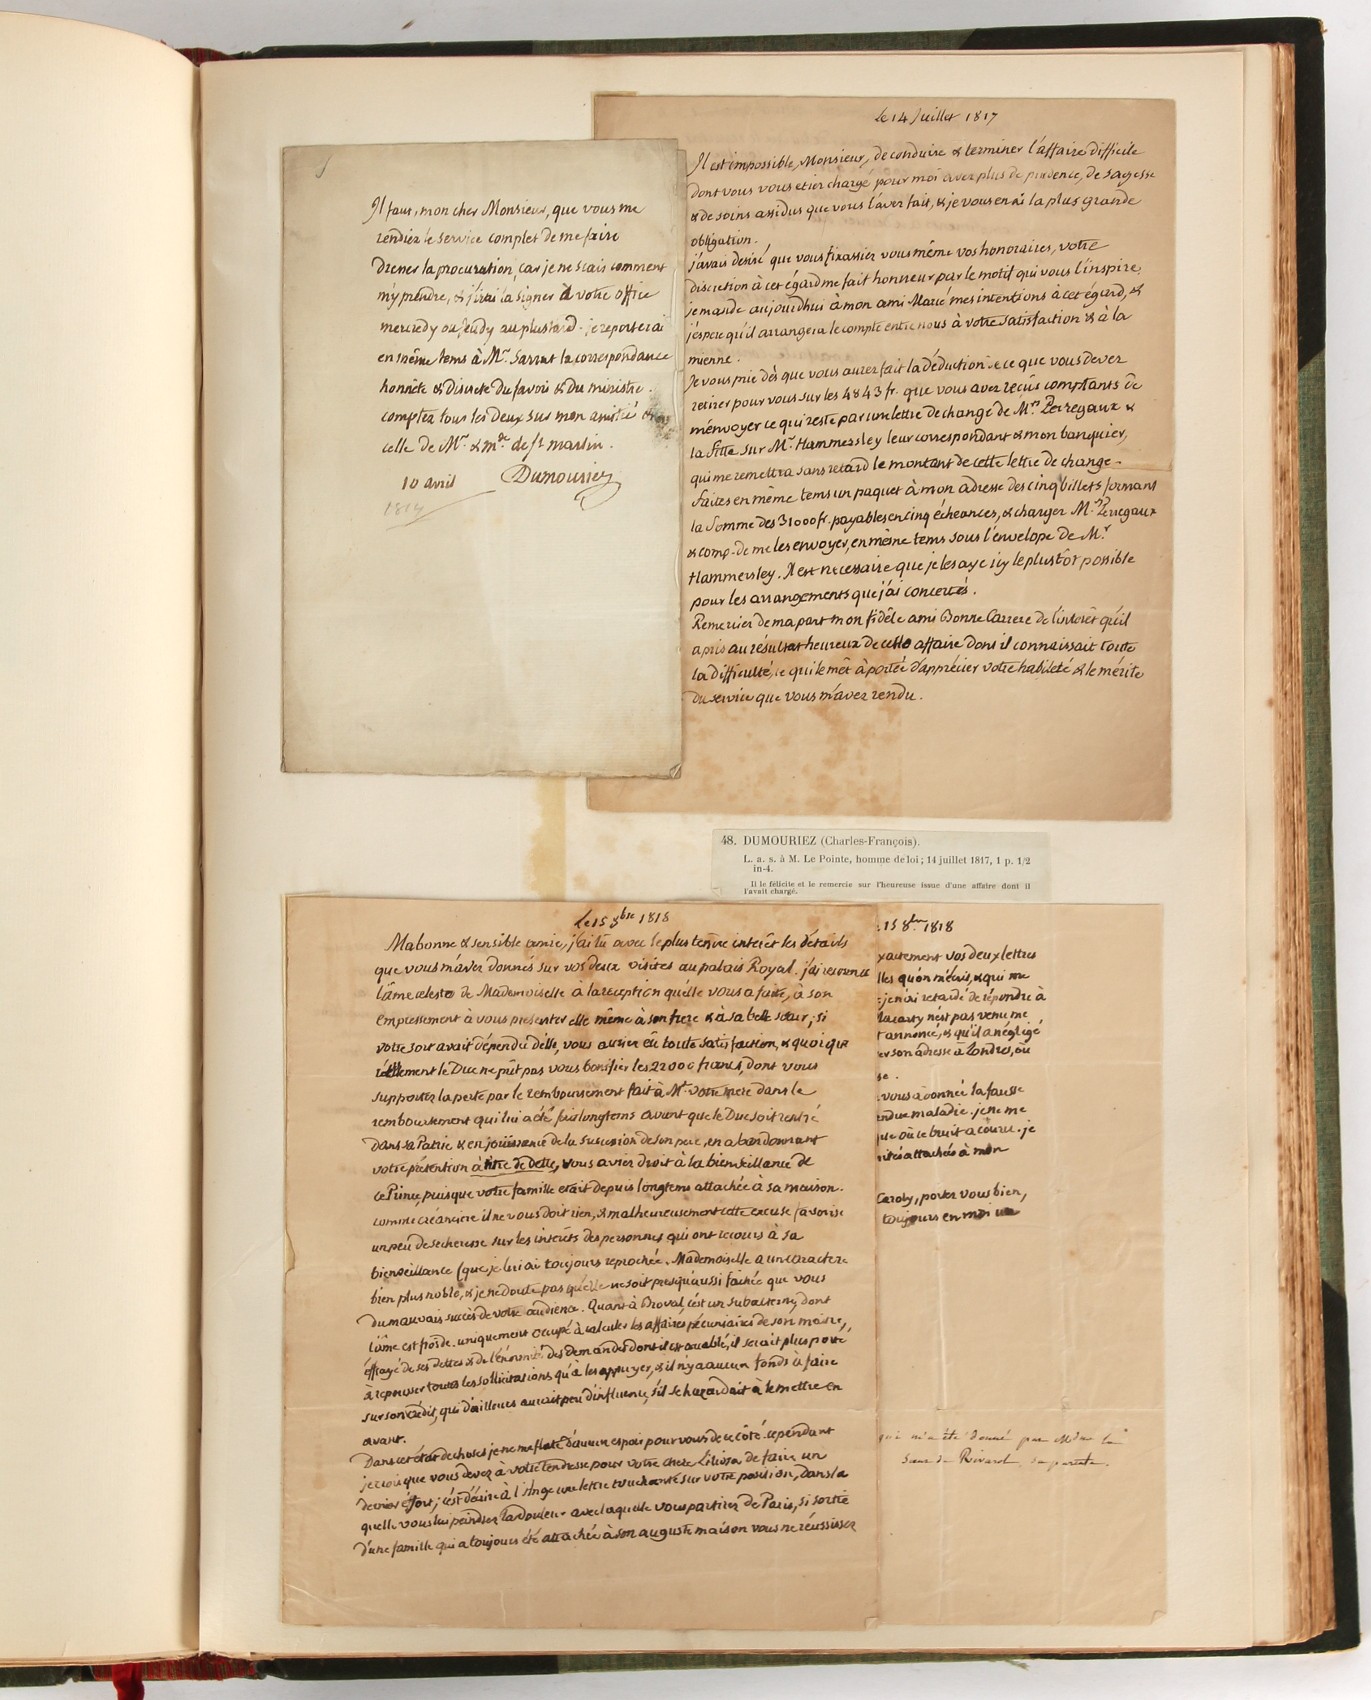 Il faut, mon cher Monsieur, que vous me
rendiez le service complet de me faire
Dresser la procuration, car je ne scais comment
m'y prendre, & j'irai la signer à votre office
mercredy ou jeudy au plustard. je reporterai
en même tems à Mr. Sarrut la correspondance
honnete & Discrete Du favori & Du ministre.
comptez tous les Deux sur mon amitié &
celle de Mr. & mde. de St martin.
10 avril Dumouriez
Le 14 Juillet 1817
Il est impossible, Monsieur, de conduire & terminer l'affaire difficile
dont vous vous etiez chargé pour moi avec plus de prudence, de sagesse
& de soins assidus que vous l'avez fait, & je vous en ai la plus grande
obligation.
j'avais desiré que vous fixassiez vous même vos honoraires, votre
discretion à cet égard me fait honneur par le motif qui vous l'inspire,
je mande aujourdhui à mon ami Marié mes intentions à cet égard, &
j'espere qu'il arrangera le compte entre nous à votre satisfaction & à la
mienne.
Je vous prie dès que vous aurez fait la Déduction de ce que vous devez
retirer pour vous sur les 4843 fr. que vous avez reçus comptants de
m'envoyer ce qui reste par une lettre De change de Mrs Perregaux &
la fitte sur Mr. Hammersley leur correspondant & mon banquier,
qui me remettra sans retard le montant de cette lettre de change.
faites en même tems un paquet à mon adresse des cinq billets formant
la Somme des 31000 fr. payables en cinq écheances, & chargez Mrs Perregaux
& comp. de me les envoyer, en même tems sous l'envelope de Mr
Hammersley. Il est necessaire que je les aye ici le plustôt possible
pour les arrangements que j'ai concertés.
Remerciez de ma part mon fidèle ami Bonne Carrere de l'interêt qu'il
a pris au résultat heureux de cette affaire dont il connaissait toute
la difficulté, ce qui le mèt à portée d'apprécier votre habileté & le mérite
du service que vous m'avez rendu.
48. DUMOURIEZ (Charles-François).
L. a. s. à M. Le Pointe, homme de loi; 14 juillet 1817, 1 p. 1/2
in-4.
Il le félicite et le remercie sur l'heureuse issue d'une affaire dont il
l'avait chargé.
Le 15 8bre 1818
Ma bonne & sensible amie, j'ai lu avec le plus tendre interêt les détails
que vous m'avez donnés sur vos deux visites au palais Royal. j'ai reconnu
l'âme celeste de Mademoiselle à la reception qu'elle vous a faite, à son
Empressement à vous presenter elle même à son frere & à sa belle soeur; si
votre sort avait dépendu d'elle, vous auriez eû toute satisfaction, & quoique
réellement le Duc ne pût pas vous bonifier les 22000 francs, dont vous
supportez la perte par le remboursement fait à Mr votre pere dans le
remboursement qui lui a été fait longtems avant que le Duc soit rentré
dans sa Patrie & en jouissance de la succession de son pere, en abandonnant
votre prétention à titre de dette, vous aviez droit à la bienveillance de
ce Prince, puisque votre famille etait depuis longtems attachée à sa maison.
comme créanciere il ne vous doit rien, & malheureusement cette excuse favorise
un peu de secheresse sur les interêts des personnes qui ont recours à sa
bienveillance (que je lui ai toujours reprochée. Mademoiselle a un caractere
bien plus noble, & je ne doute pas qu'elle ne soit presqu'aussi fachée que vous
du mauvais succès de votre audience. Quant à Broval, c'est un subalterne, dont
l'âme est froide. uniquement occupé à calculer les affaires pécuniaires de son maitre,
éffrayé de ses dettes & de l'énormité des Demandes dont il est accablé, il serait plus porté
à repousser toutes les sollicitations qu'à les appuyer, & il n'y a aucun fonds à faire
sur son crédit, qui d'ailleurs aurait peu d'influence, s'il se hazardait à le mettre en
avant.
Dans cet état de choses je ne me flatte d'aucun espoir pour vous de ce côté. cependant
je crois que vous devez à votre tendresse pour votre chere de faire un
dernier effort; c'est d'écrire à l'Ange une lettre touchante sur votre position, Dans la
quelle vous lui peindrez la douleur avec laquelle vous partirez de Paris, si sortie
d'une famille qui a toujours été attachée à son auguste maison vous ne réussissez
15 8bre 1818
xactement vos deux lettres
lles qu'on m'écrit, & qui me
je n'ai retardé de répondre à
n'est pas venu me
t annoncé, & qu'il a négligé
er son adresse à Londres, ou
se.
vous a donné la fausse
endue maladie. je ne me
que où ce bruit a couru. je
rités attachés à mon
Caroly, portez vous bien,
toujours en moi un
qui m'a été donné par Mdme la
Soeur de Rivarol, sa parente.